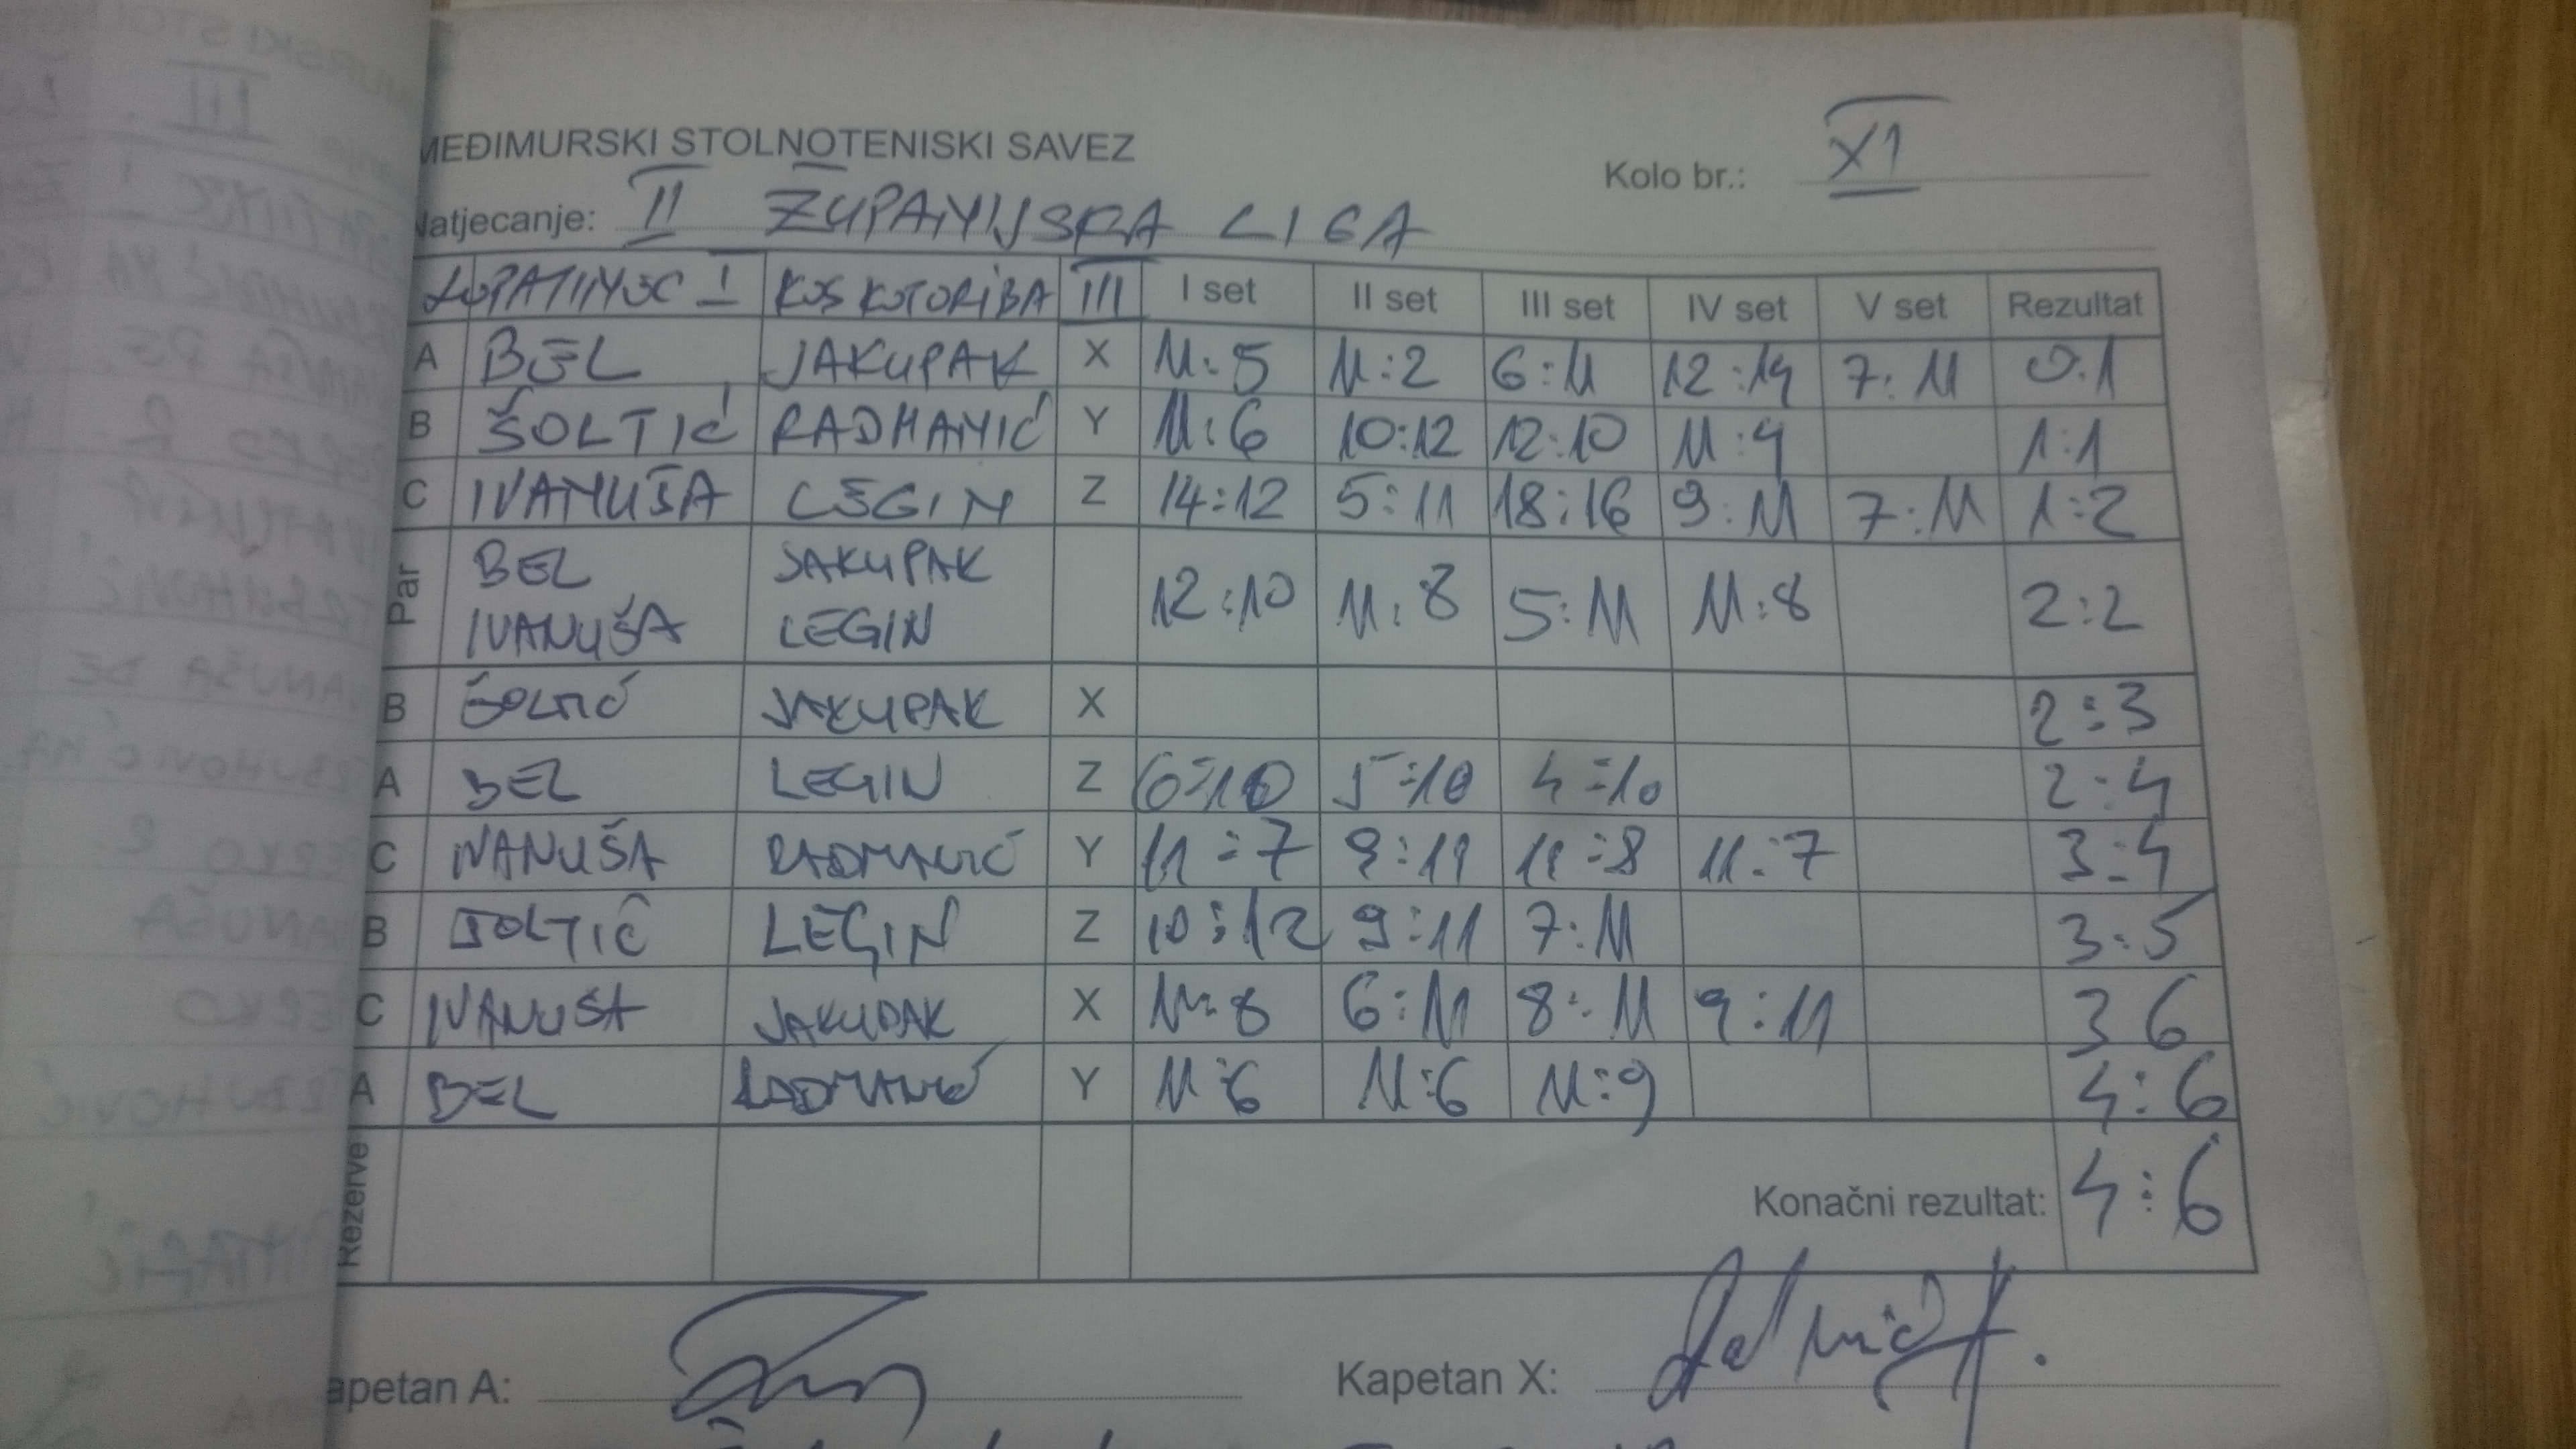 MEĐIMURSKI STOLNOTENISKI SAVEZ
Kolo br.: XI
Natjecanje: II ŽUPANIJSKA LIGA
LOPATINEC I KOS KOTORIBA III I set II set III set IV set V set Rezultat
A BEL JAKUPAK X 11:5 11:2 6:11 12:14 7:11 0:1
B ŠOLTIĆ RADMANIĆ Y 11:6 10:12 12:10 11:9 1:1
C IVANUŠA LEGIN Z 14:12 5:11 18:16 9:11 7:11 1:2
Par BEL JAKUPAK
IVANUŠA LEGIN 12:10 11:8 5:11 11:8 2:2
B ŠOLTIĆ JAKUPAK X 2:3
A BEL LEGIN Z 6:10 5:10 4:10 2:4
C IVANUŠA RADMANIĆ Y 11:7 9:11 11:8 11:7 3:4
B ŠOLTIĆ LEGIN Z 10:12 9:11 7:11 3:5
C IVANUŠA JAKUPAK X 11:8 6:11 8:11 9:11 3 6
A BEL RADMANIĆ Y 11:6 11:6 11:9 4:6
Rezerve Konačni rezultat: 4:6
apetan A: Kapetan X: